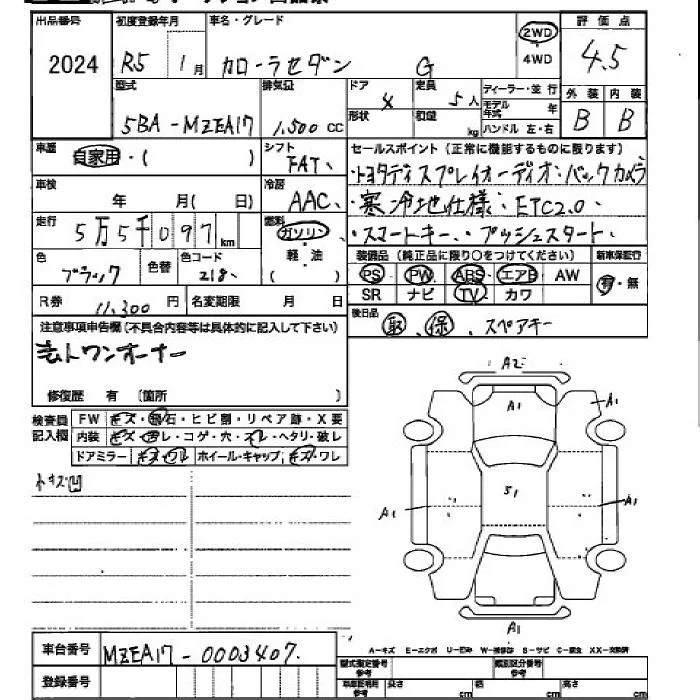 出品番号 初度登録年月 車名・グレード 2WD 4WD 評価点
2024 R5 1月 カローラセダン G 4.5
型式 排気量 ドア 定員 ディーラー・並行 外装 内装
5BA-MZEA17 1,500cc 4 5人 モデル年式 年 B B
形状 積量 kg ハンドル 左・右
車歴 自家用・( ) シフト FAT セールスポイント(正常に機能するものに限ります)
・トヨタディスプレイオーディオ・バックカメラ
車検 年 月( 日) 冷房 AAC
・寒冷地仕様・ETC2.0・
走行 5万5千097km 燃料 ガソリン 軽油 ( )
・スマートキー・プッシュスタート・
色 ブラック 色替 色コード 218
装備品(純正品に限り○をつけてください) 新車保証行
PS PW ABS エアB AW 有・無
SR ナビ TV カワ
R券 11,300円 名変期限 月 日
後日品 取、保、スペアキー
注意事項申告欄(不具合内容等は具体的に記入して下さい)
ワンオーナー
修復歴 有 〔箇所 〕
検査員記入欄 FW キズ・飛石・ヒビ割・リペア跡・X要
内装 キズ・ヨゴレ・コゲ・穴・スレ・ヘタリ・破レ
ドアミラー キズ・ワレ ホイール・キャップ キズ・ワレ
A2
A1 A1
S1
A1 A1
A1
A-キズ E-エクボ U-凹み W-補修跡 S-サビ C-腐食 XX-交換済
車台番号 MZEA17-0003407
登録番号
型式指定番号参考 類別区分番号参考
車庫証明用参考 長さ cm 幅 cm 高さ cm